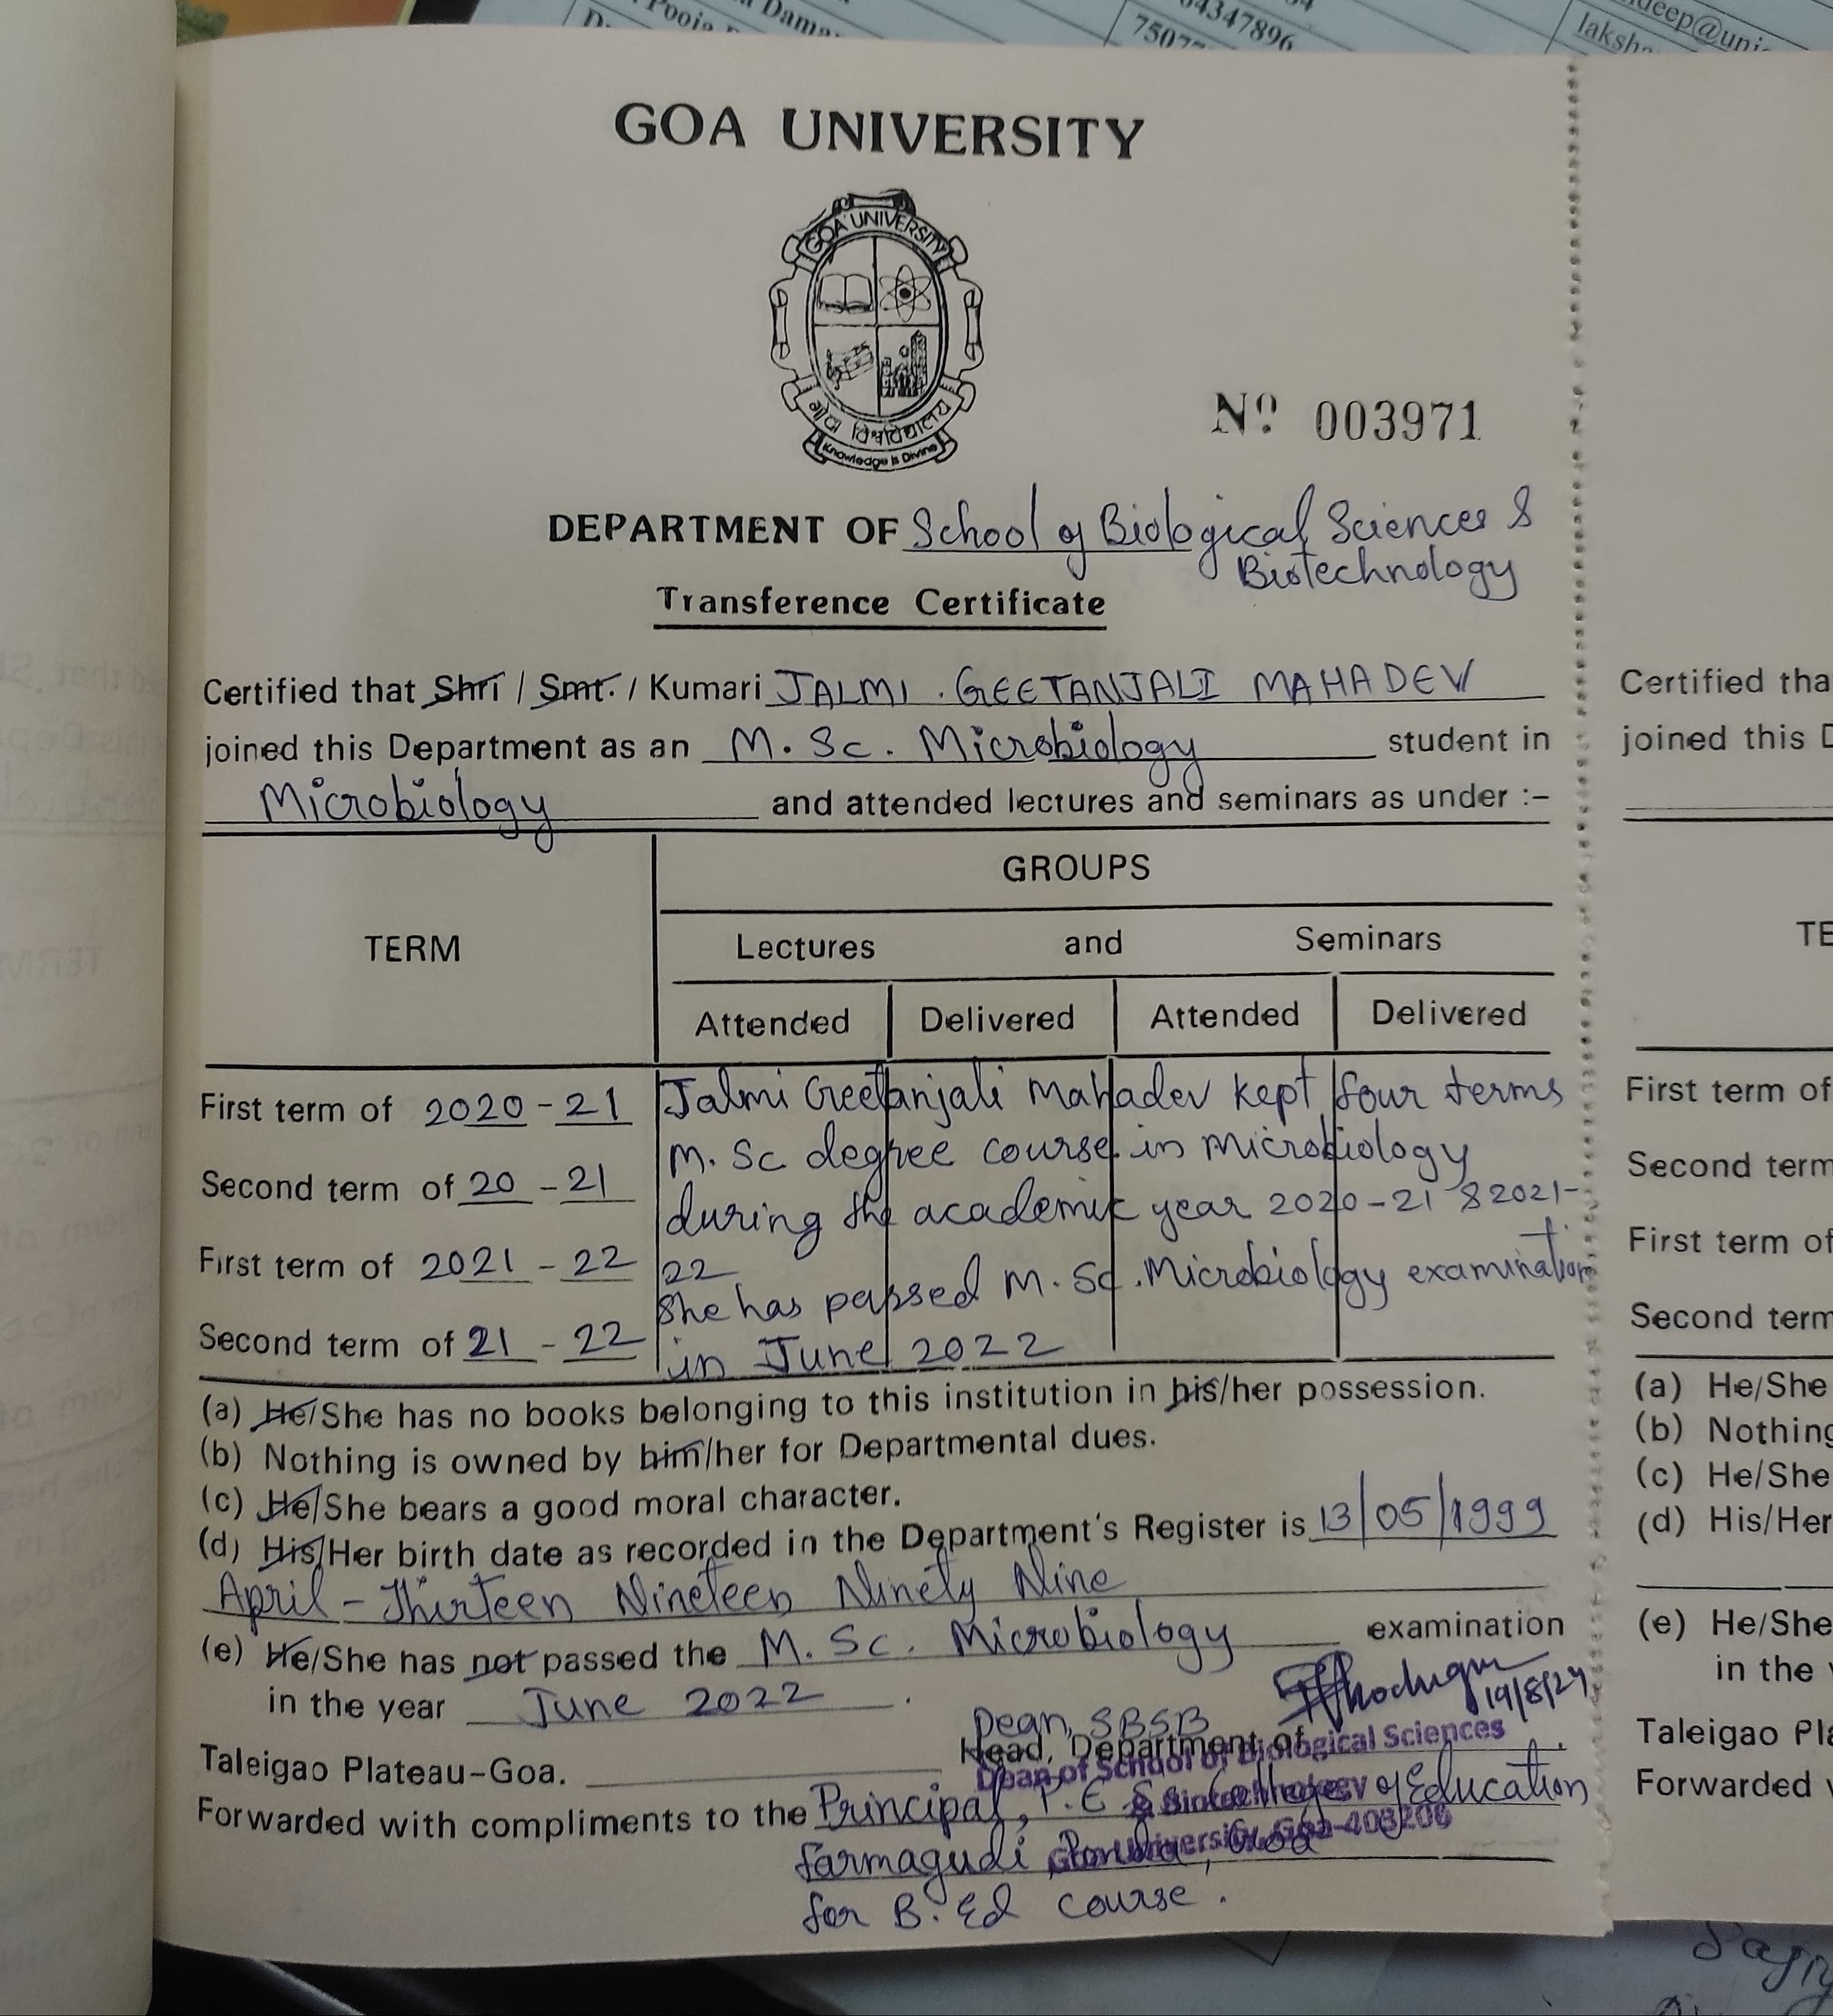 Pooja
Dama
34347896
7507
deep@uni
laksh
GOA UNIVERSITY
GOA UNIVERSITY
गोंय विश्वविद्यालय
Knowledge is Divine
Nº 003971
DEPARTMENT OF School of Biological Sciences &
Biotechnology
Transference Certificate
Certified that Shri / Smt. / Kumari JALMI . GEETANJALI MAHADEV
joined this Department as an M. Sc. Microbiology student in
Microbiology and attended lectures and seminars as under :–
GROUPS
TERM Lectures and Seminars
Attended Delivered Attended Delivered
First term of 2020 - 21
Second term of 20 - 21
First term of 2021 - 22
Second term of 21 - 22
Jalmi Geetanjali Mahadev kept four terms
M. Sc degree course in microbiology
during the academic year 2020-21 & 2021-
22
She has passed M. Sc. Microbiology examination
in June 2022
(a) He/She has no books belonging to this institution in his/her possession.
(b) Nothing is owned by him/her for Departmental dues.
(c) He/She bears a good moral character.
(d) His/Her birth date as recorded in the Department's Register is 13/05/1999
April - Thirteen Nineteen Ninety Nine
(e) He/She has not passed the M. Sc. Microbiology examination
in the year June 2022 .
19/8/24
Dean, SBSB
Head, Department of
Dean of School of Biological Sciences
& Biotechnology
Goa University, Goa-403206
Taleigao Plateau–Goa.
Forwarded with compliments to the Principal, P.E.S's College of Education
farmagudi Ponda, Goa
for B. Ed course .
Certified tha
joined this D
TE
First term of
Second term
First term of
Second term
(a) He/She
(b) Nothing
(c) He/She
(d) His/Her
(e) He/She
in the
Taleigao Pla
Forwarded